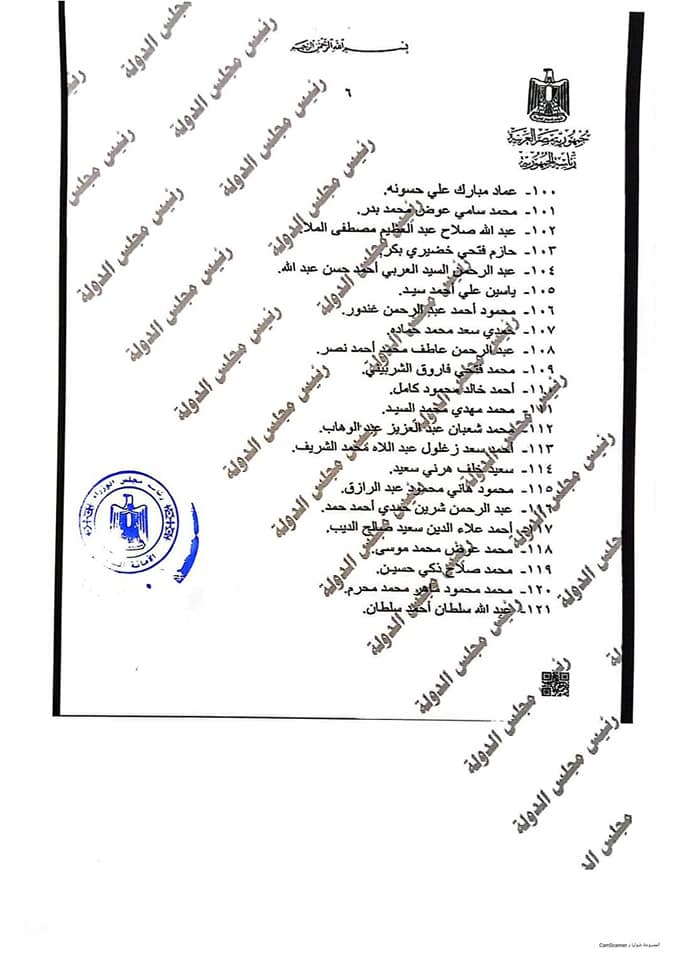 بسم الله الرحمن الرحيم
٦
جمهورية مصر العربية
رئاسة الجمهورية
١٠٠- عماد مبارك علي حسونه.
١٠١- محمد سامي عوض محمد بدر.
١٠٢- عبد الله صلاح عبد العظيم مصطفى الملا.
١٠٣- حازم فتحي خضيري بكر.
١٠٤- عبد الرحمن السيد العربي أحمد حسن عبد الله.
١٠٥- ياسين علي أحمد سيد.
١٠٦- محمود أحمد عبد الرحمن غندور.
١٠٧- حمدي سعد محمد حماده.
١٠٨- عبد الرحمن عاطف محمد أحمد نصر.
١٠٩- محمد فتحي فاروق الشربيني.
١١٠- أحمد خالد محمود كامل.
١١١- محمد مهدي محمد السيد.
١١٢- محمد شعبان عبد العزيز عبد الوهاب.
١١٣- أحمد سعد زغلول عبد اللاه محمد الشريف.
١١٤- سعيد خلف هرني سعيد.
١١٥- محمود هاني محمود عبد الرازق.
عبد الرحمن شرين حمدي أحمد حمد.
١١٧- أحمد علاء الدين سعيد صالح الديب.
١١٨- محمد عوض محمد موسى.
١١٩- محمد صلاح ذكي حسين.
١٢٠- محمد محمود ماهر محمد محرم.
١٢١- عبد الله سلطان أحمد سلطان.
رئاسة مجلس الوزراء
الأمانة
رئيس مجلس الدولة
الممسوحة ضوئيا بـ CamScanner